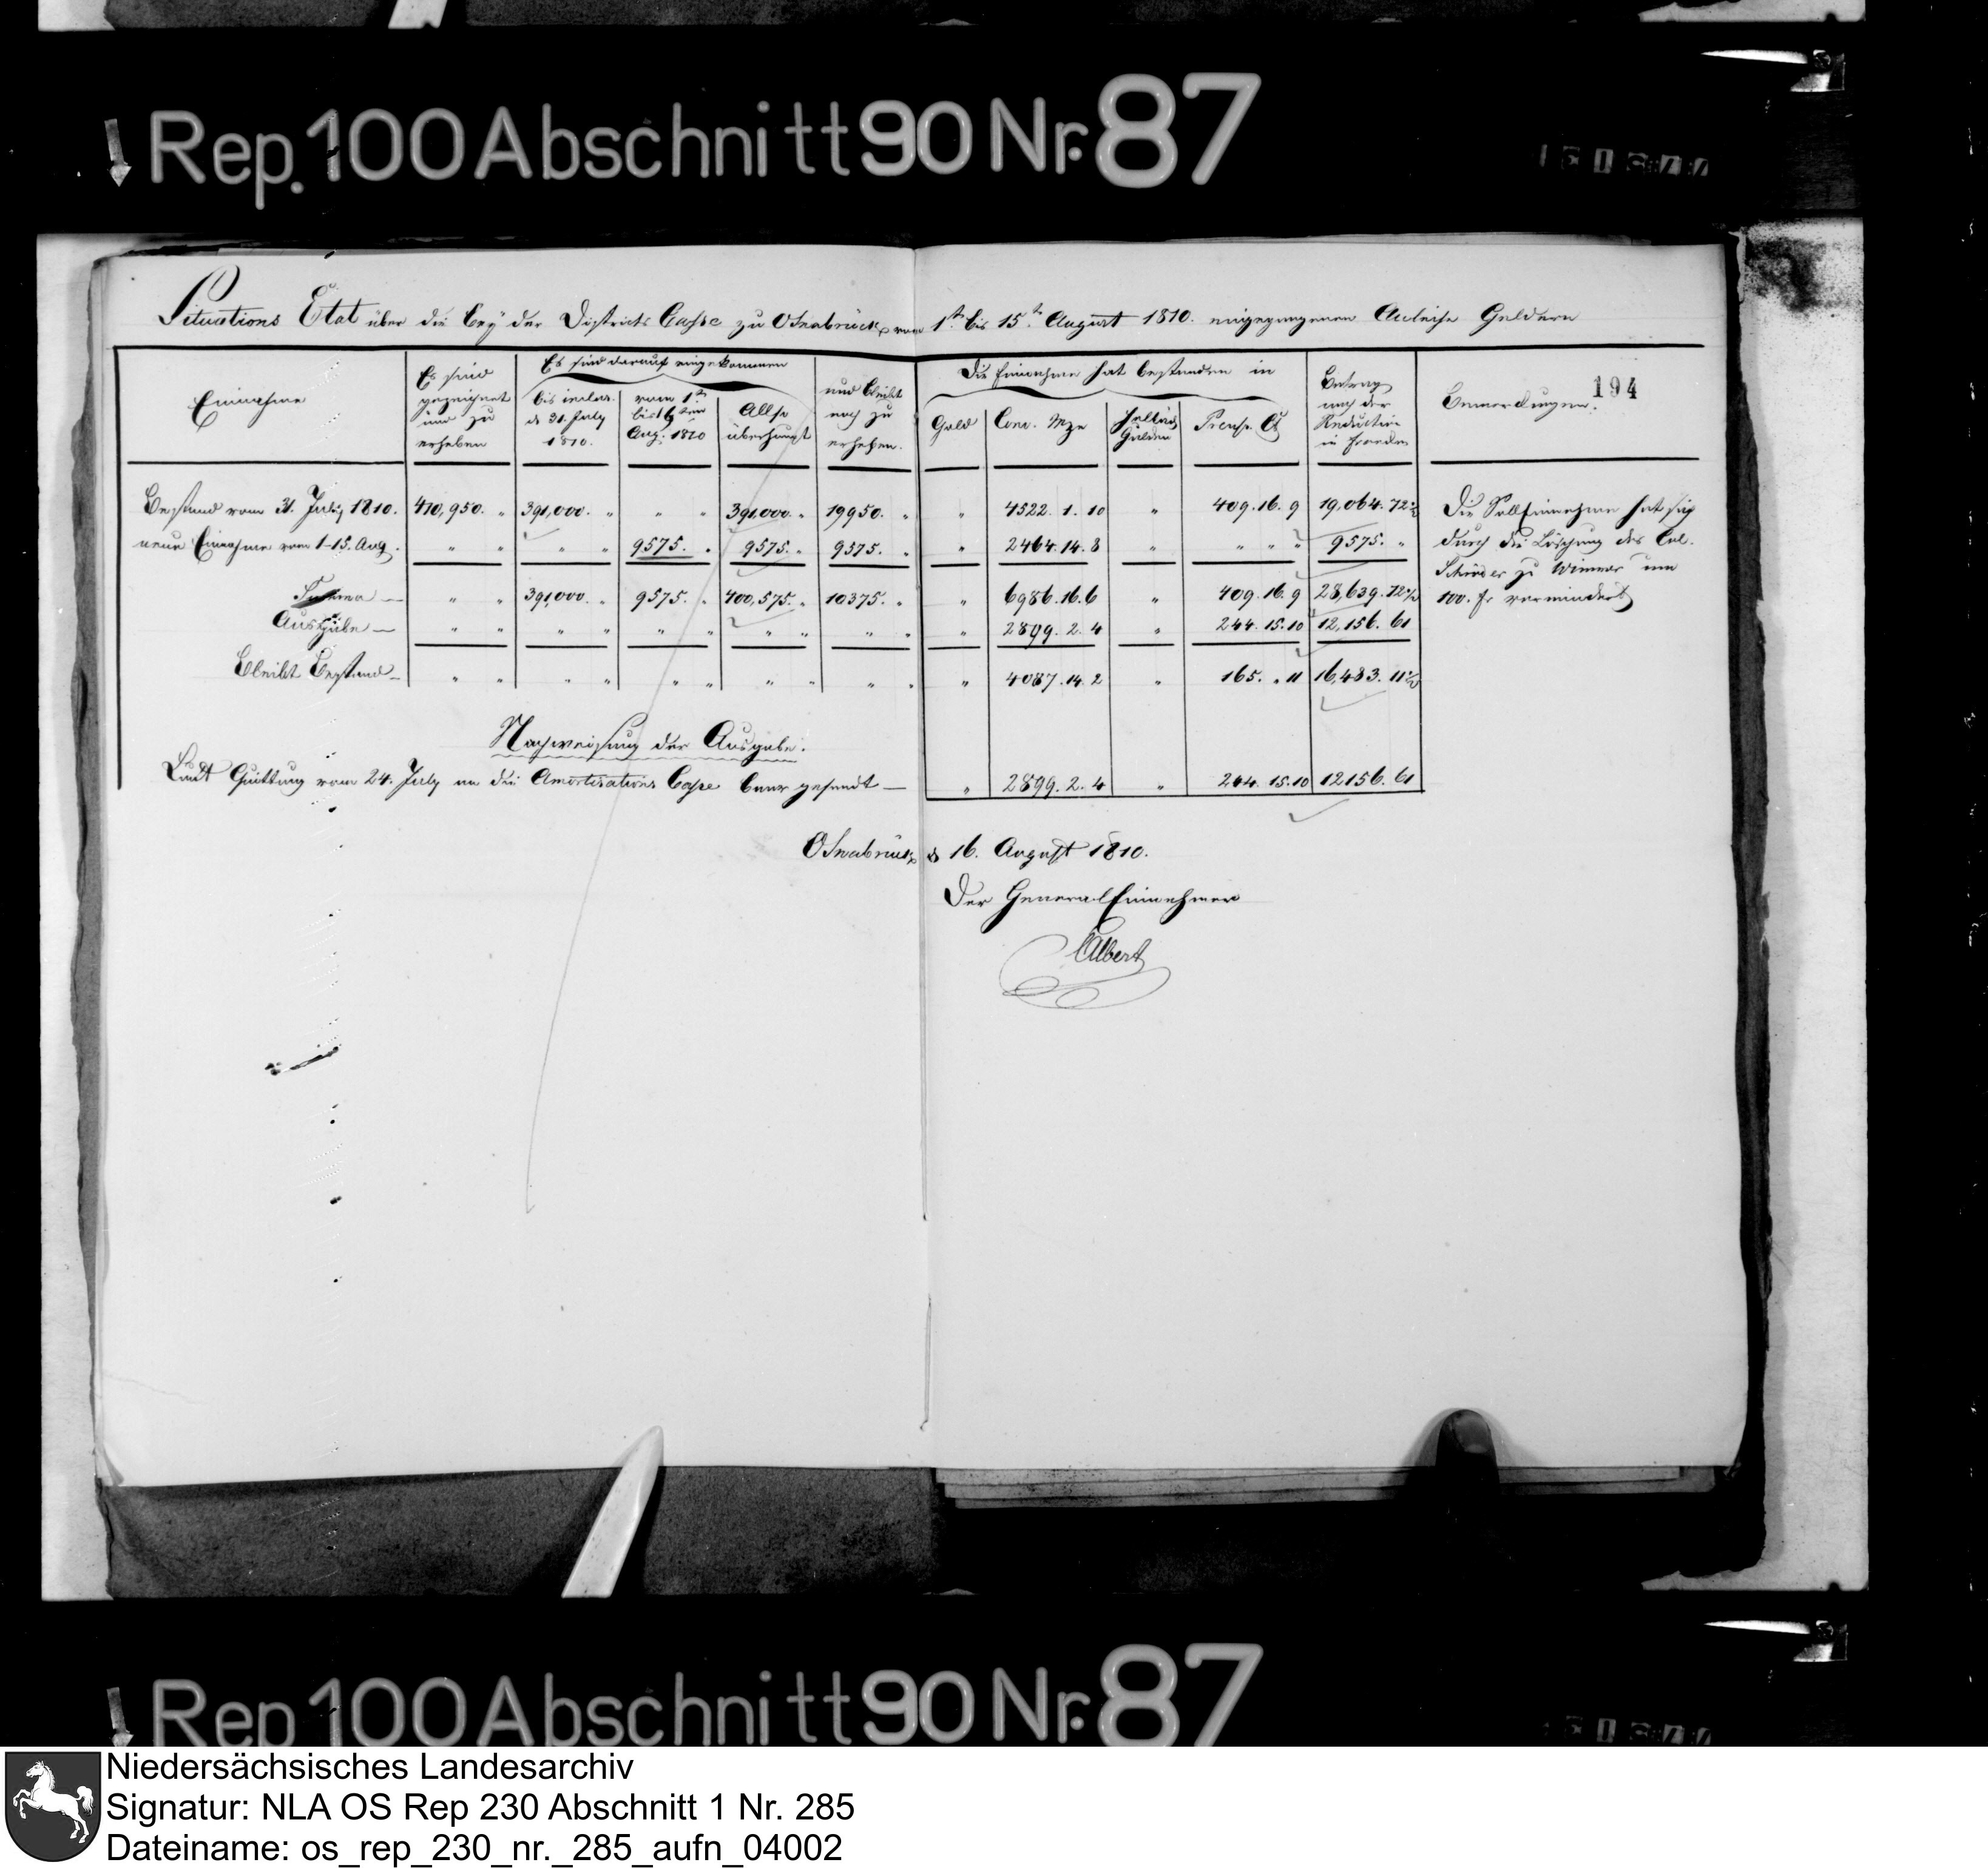 Rep. 100 Abschnitt 90 Nr. 87
Situations Etat über die bey der Districts Casse zu Osnabrück vom 1ten bis 15ten August 1810. eingegangenen Anleihe Geldern
194
Einnahme
Es sind gezeichnet und zu erheben
Es sind darauf eingekommen
bis inclus. d 31. July 1810.
vom 1ten bis 15ten Aug: 1810
Also überhaupt
und bleibt noch zu erheben.
Die Einnahme hat bestanden in
Gold
Conv. Mze
Holländ Gulden
Preuss. Ct
Betrag nach der Reduction in Franken
Bemerkungen.
Bestand vom 31. July 1810. 410,950. " 391,000. " " " 391,000. " 19950. " " 4522. 1. 10 " 409. 16. 9 19,064. 72
neue Einnahme vom 1-15. Aug. " " " " 9575. " 9575. " 9575. " " 2464. 14. 8 " " " " 9575. "
Summa — " " 391,000. " 9575. " 400,575. " 10375. " " 6986. 16. 6 " 409. 16. 9 28,639. 72
Ausgabe — " " " " " " " " " " " 2899. 2. 4 " 244. 15. 10 12,156. 61
Bleibt Bestand — " " " " " " " " " " " 4087. 14. 2 " 165. " 11 16,483. 11
Die Soll Einnahme hat sich
durch die Löschung des Col.
Schröder zu Wimmer um
100. fr vermindert
Nachweisung der Ausgabe.
Laut Quittung vom 24. July an die Amortisations Casse baar gesandt — " 2899. 2. 4 " 244. 15. 10 12156. 61
Osnabrück d 16. August 1810.
Der General Einnehmer
Albert
Rep 100 Abschnitt 90 Nr. 87
Niedersächsisches Landesarchiv
Signatur: NLA OS Rep 230 Abschnitt 1 Nr. 285
Dateiname: os_rep_230_nr._285_aufn_04002